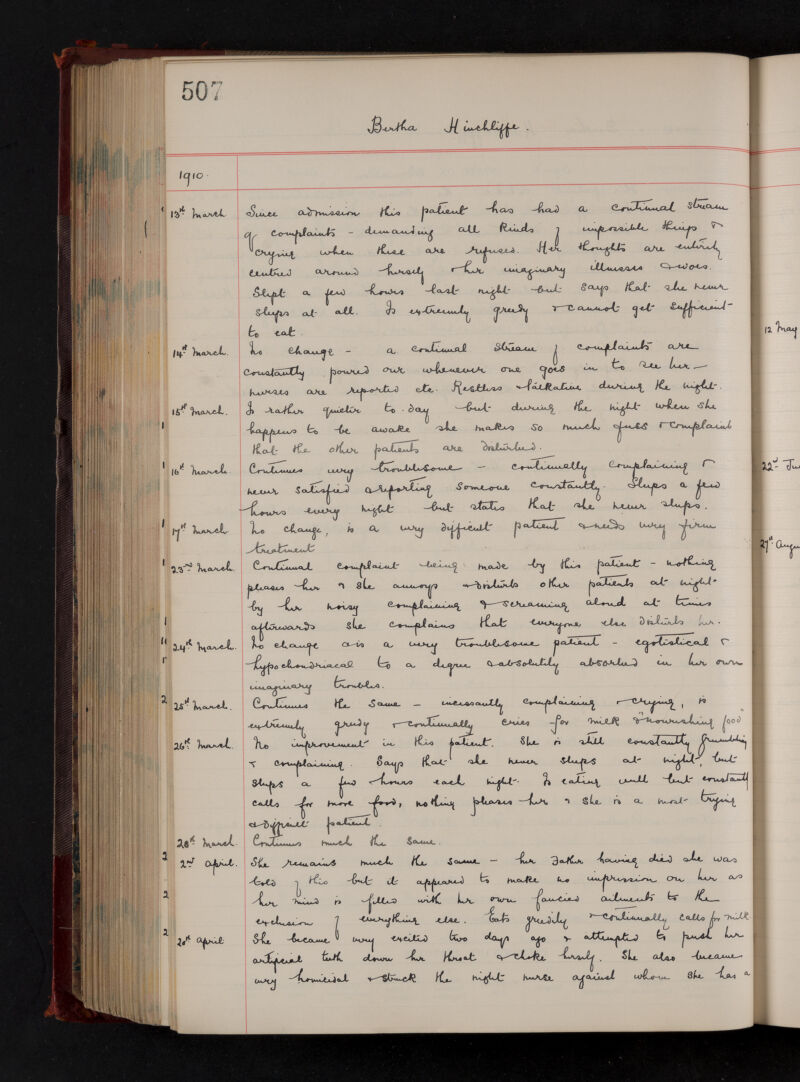 507
Bertha Hinchliffe.
1910.
13th March Since admission this patient has had a continual stream
of complaints - demanding all kinds of impossible things &
crying when these are refused. Her thoughts are entirely
centred around herself & her imaginary illnesses & woes.
Slept a few hours last night but says that she never
sleeps at all. Is extremely greedy & cannot get sufficient
to eat.
14th March. No change - a continual stream of complaints are
constantly poured out whenever one goes in to see her -
nurses are reported etc. Restless & talkative during the night.
15th March. Is rather quieter to-day but during the night when she
happens to be awake she makes so much fuss & complaint
that the other patients are disturbed.
16th March Continues very troublesome - continually complaining &
never satisfied & reporting someone constantly. Sleeps a few
hours every night but states that she never sleeps.
17th March No change, is a very difficult patient & needs very firm
treatment
23rd March Continual complaint being made by this patient - nothing
pleases her & she annoys & disturbs other patients at night
by her noisy complaining & screaming aloud at times
afterwards she complains that everyone else disturbs her.
24th March. No change & is a very troublesome patient - egotistical &
hypochondriacal to a degree & absolutely absorbed in her own
imaginary troubles.
25th March. Continues the same - incessantly complaining & crying, is
extremely greedy & continually cries for milk & nourishing food
26th March. No improvement in this patient. She is still constantly grumbling
& complaining. Says that she never sleeps at night, but
sleeps a few hours each night. Is eating well but constantly
calls for more food, nothing pleases her & she is a most trying
& difficult patient.
28th March. Continues much the same.
2nd April. She remains much the same - her father having died she was
told of this but it appeared to make no impression on her as
her mind is filled with her own fancied ailments to the
exclusion of everything else. Eats greedily & continually calls for milk
20th April She became very excited two days ago & attempted to push her
artificial teeth down her throat & choke herself. She also became
very homicidal & struck the night nurse against whom she has a
12 May
22nd
27th